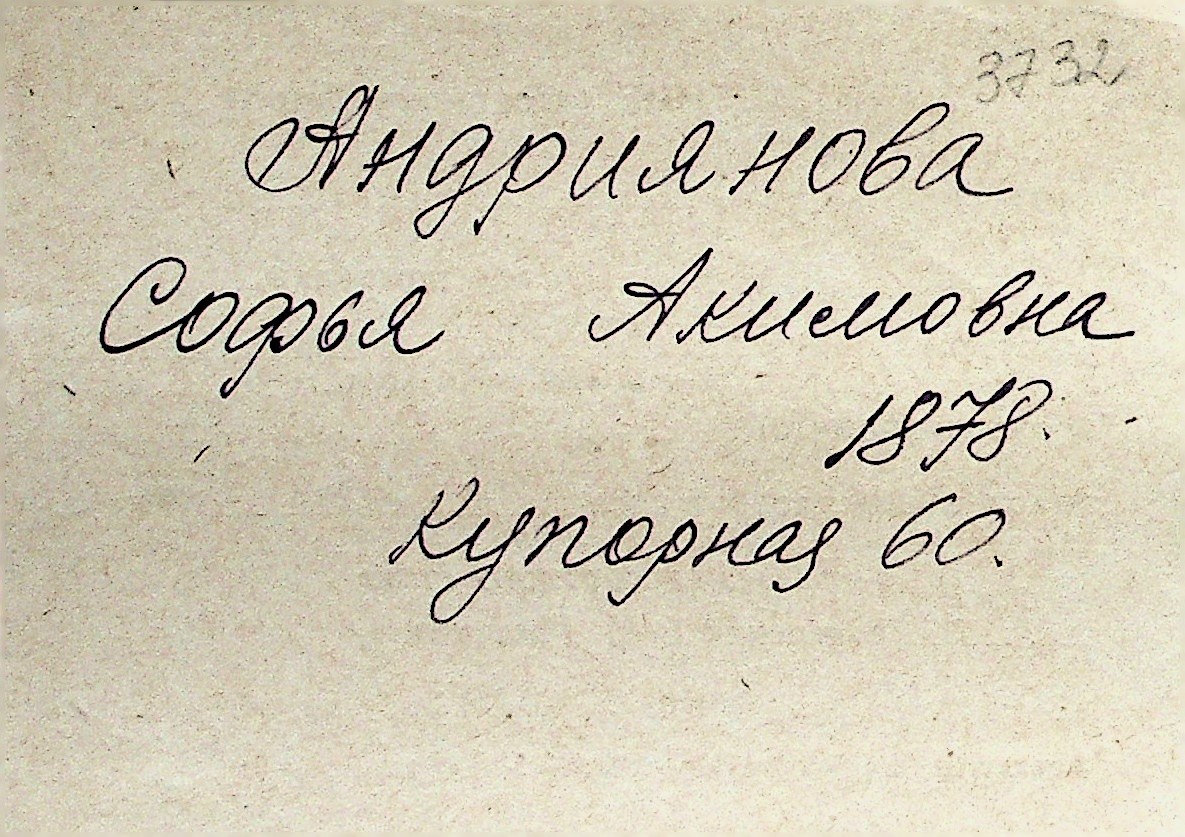 3732
Андриянова
Софья Акимовна
1878.
Купорная 60.